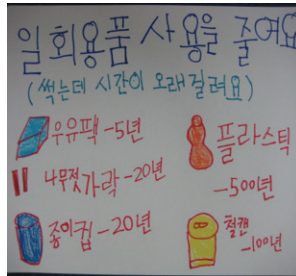 일회용품 사용을 줄여요
(썩는데 시간이 오래걸려요)
우유팩 -5년
나무젓가락 -20년
종이컵 -20년
플라스틱
-500년
철캔
-100년